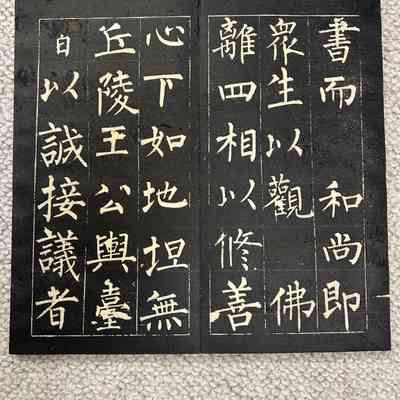 書而 和尚即
衆生以觀 佛
離四相以修善
心下如地坦無
丘陵王公輿臺
白以誠接議者